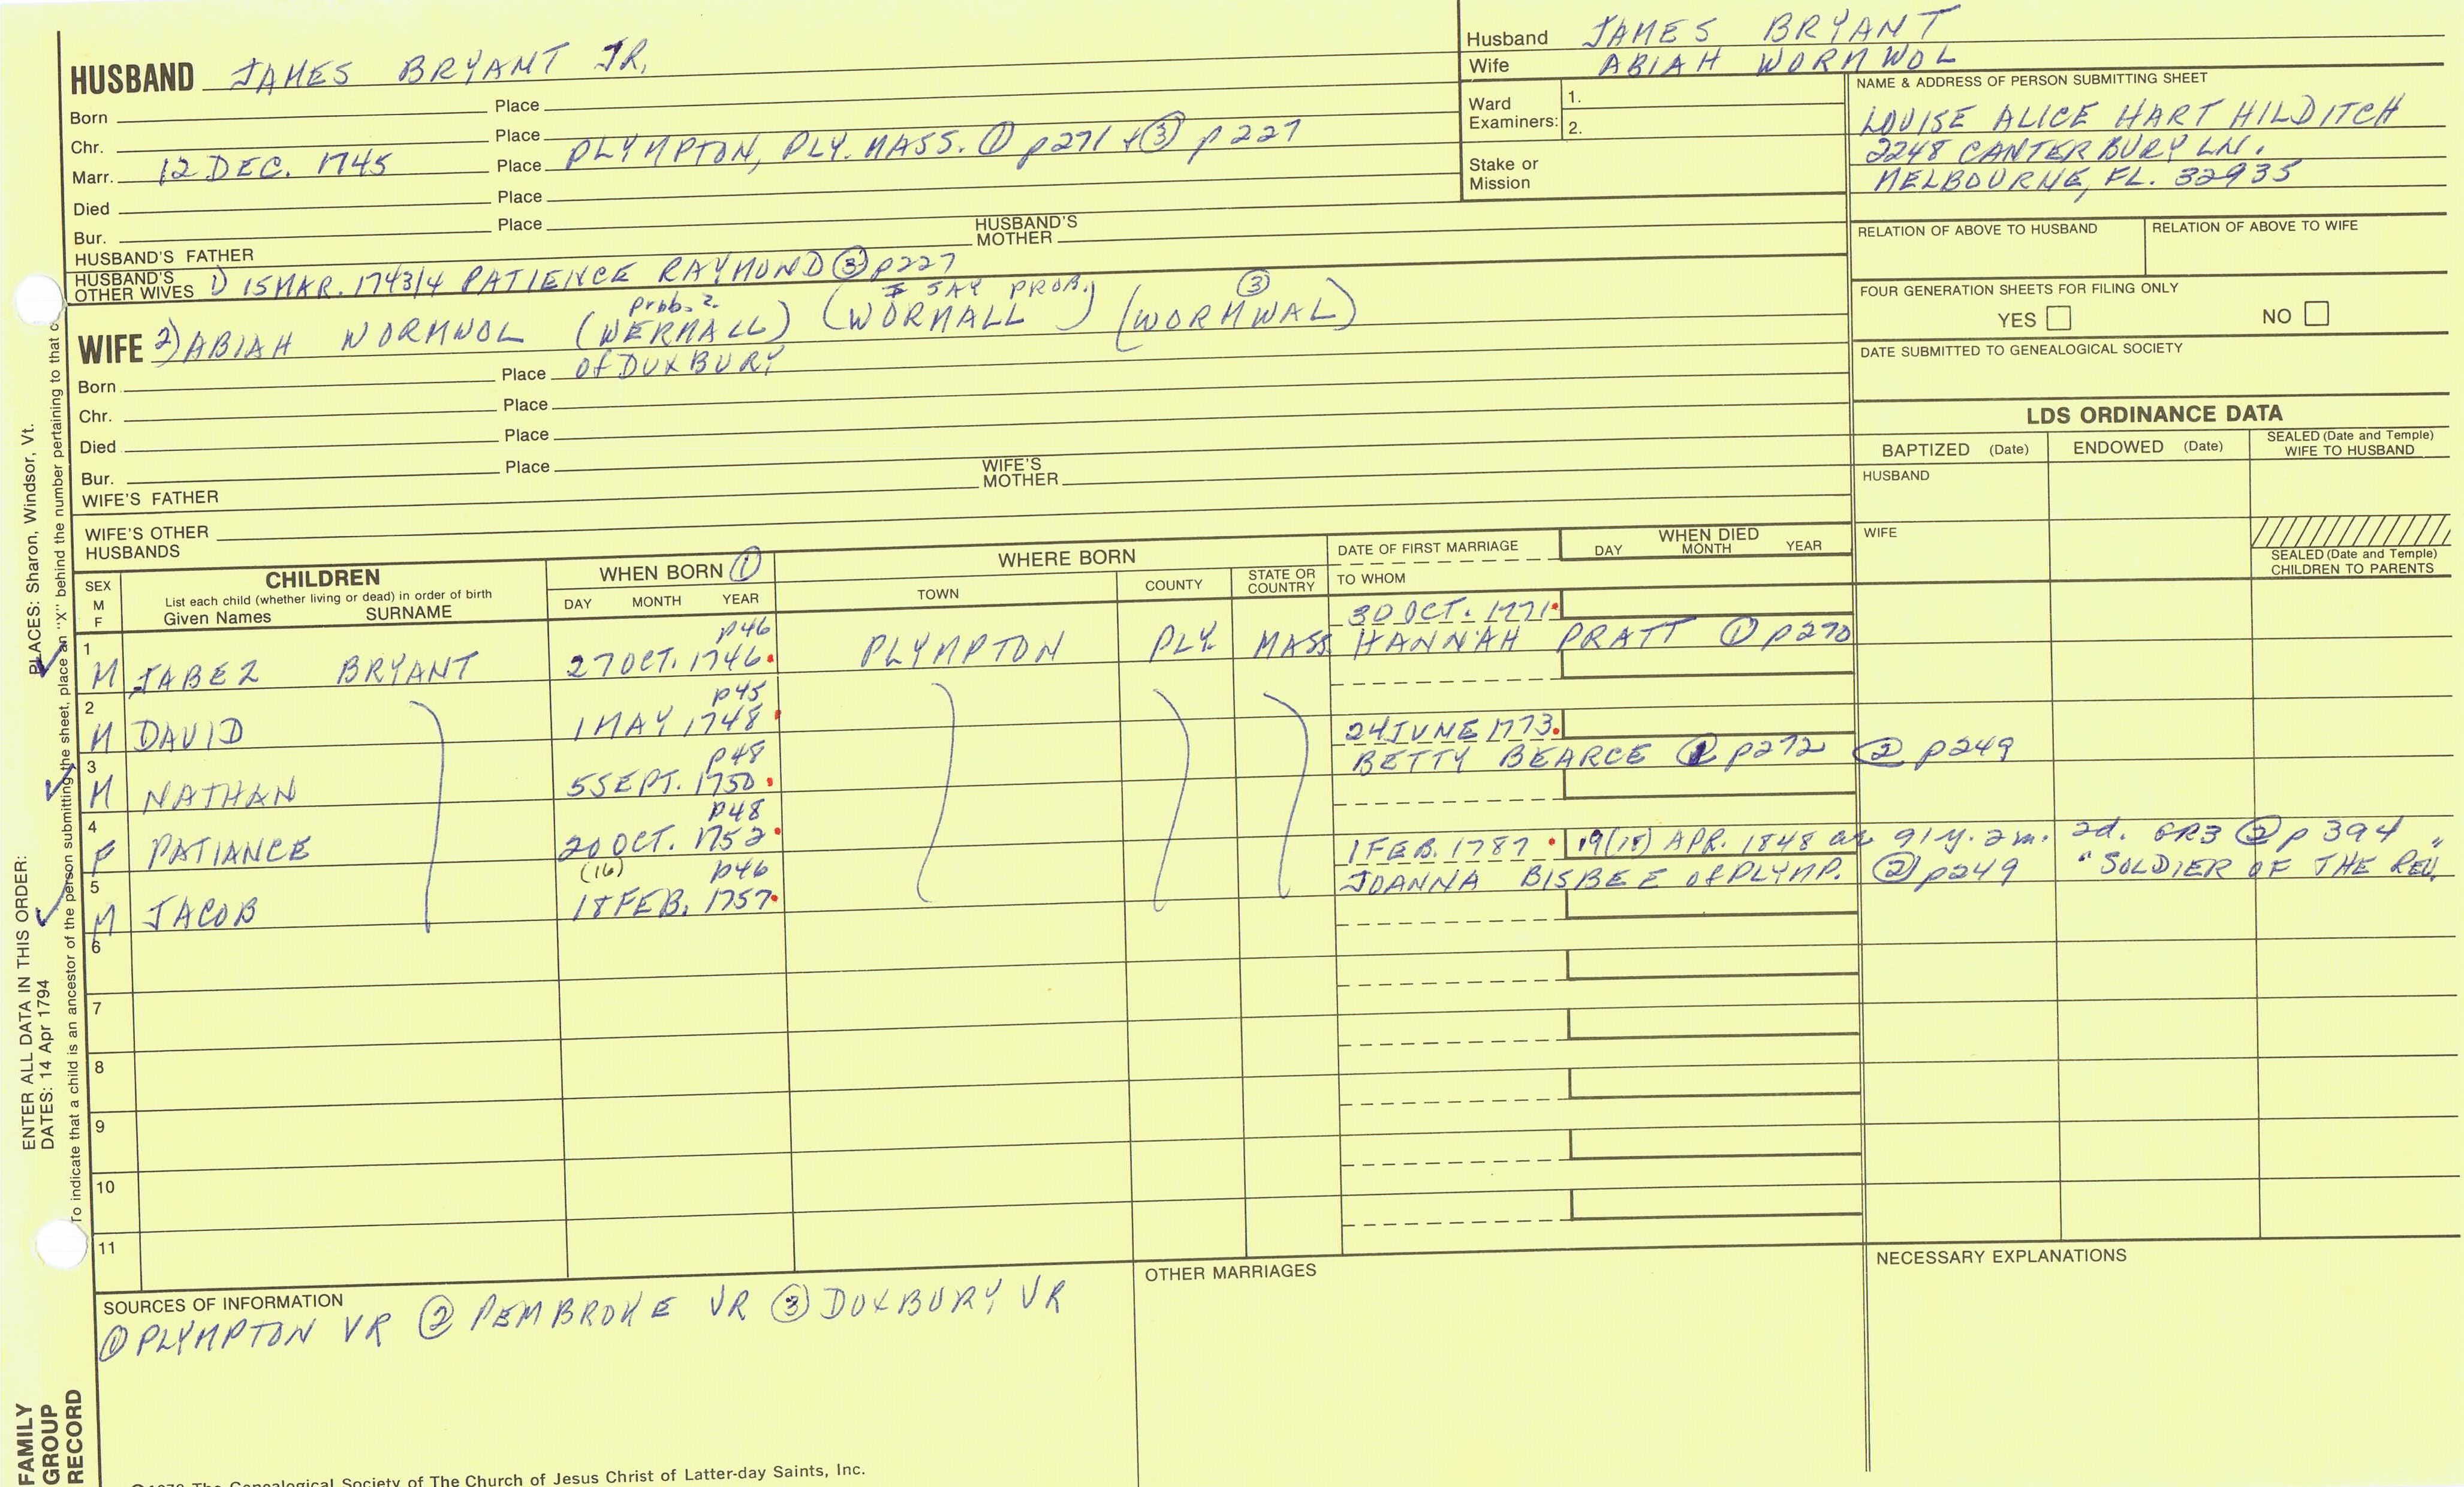 HUSBAND JAMES BRYANT JR.
Born Place
Chr. Place
Marr. 12 DEC. 1745 Place PLYMPTON, PLY. MASS. ① p271 + ③ p227
Died Place
Bur. Place
HUSBAND'S FATHER HUSBAND'S MOTHER
HUSBAND'S OTHER WIVES 1) 15 MAR. 1743/4 PATIENCE RAYMOND ③ p227
prob.? I SAY PROB. ③
WIFE 2) ABIAH WORMWOL (WERMALL) (WORMALL) (WORMWAL)
Born Place of DUXBURY
Chr. Place
Died Place
Bur. Place
WIFE'S FATHER WIFE'S MOTHER
WIFE'S OTHER HUSBANDS
Husband JAMES BRYANT
Wife ABIAH WORMWOL
Ward Examiners: 1.
2.
Stake or Mission
NAME & ADDRESS OF PERSON SUBMITTING SHEET
LOUISE ALICE HART HILDITCH
2248 CANTERBURY LN.
MELBOURNE, FL. 32935
RELATION OF ABOVE TO HUSBAND RELATION OF ABOVE TO WIFE
FOUR GENERATION SHEETS FOR FILING ONLY
YES NO
DATE SUBMITTED TO GENEALOGICAL SOCIETY
LDS ORDINANCE DATA
BAPTIZED (Date) ENDOWED (Date) SEALED (Date and Temple) WIFE TO HUSBAND
HUSBAND
WIFE
SEALED (Date and Temple) CHILDREN TO PARENTS
SEX M F
CHILDREN
List each child (whether living or dead) in order of birth
Given Names SURNAME
WHEN BORN ①
DAY MONTH YEAR
WHERE BORN
TOWN COUNTY STATE OR COUNTRY
DATE OF FIRST MARRIAGE
TO WHOM
WHEN DIED
DAY MONTH YEAR
p46 30 OCT. 1771
1 M JABEZ BRYANT 27 OCT. 1746 PLYMPTON PLY. MASS. HANNAH PRATT ① p270
p45
2 M DAVID 1 MAY 1748
p48 24 JUNE 1773
3 M NATHAN 5 SEPT. 1750 BETTY BEARCE ① p272 ② p249
p48
4 F PATIANCE 20 OCT. 1752
(16) p46 1 FEB. 1787 19(18) APR. 1848 ae 91y. 2m. 2d. GR3 ② p394
5 M JACOB 18 FEB. 1757 JOANNA BISBEE of PLYMP. ② p249 "SOLDIER OF THE REV."
6
7
8
9
10
11
SOURCES OF INFORMATION
① PLYMPTON VR ② PEMBROKE VR ③ DUXBURY VR
OTHER MARRIAGES
NECESSARY EXPLANATIONS
The Genealogical Society of The Church of Jesus Christ of Latter-day Saints, Inc.
ENTER ALL DATA IN THIS ORDER:
DATES: 14 Apr 1794
PLACES: Sharon, Windsor, Vt.
To indicate that a child is an ancestor of the person submitting the sheet, place an "X" behind the number pertaining to that
FAMILY
GROUP
RECORD